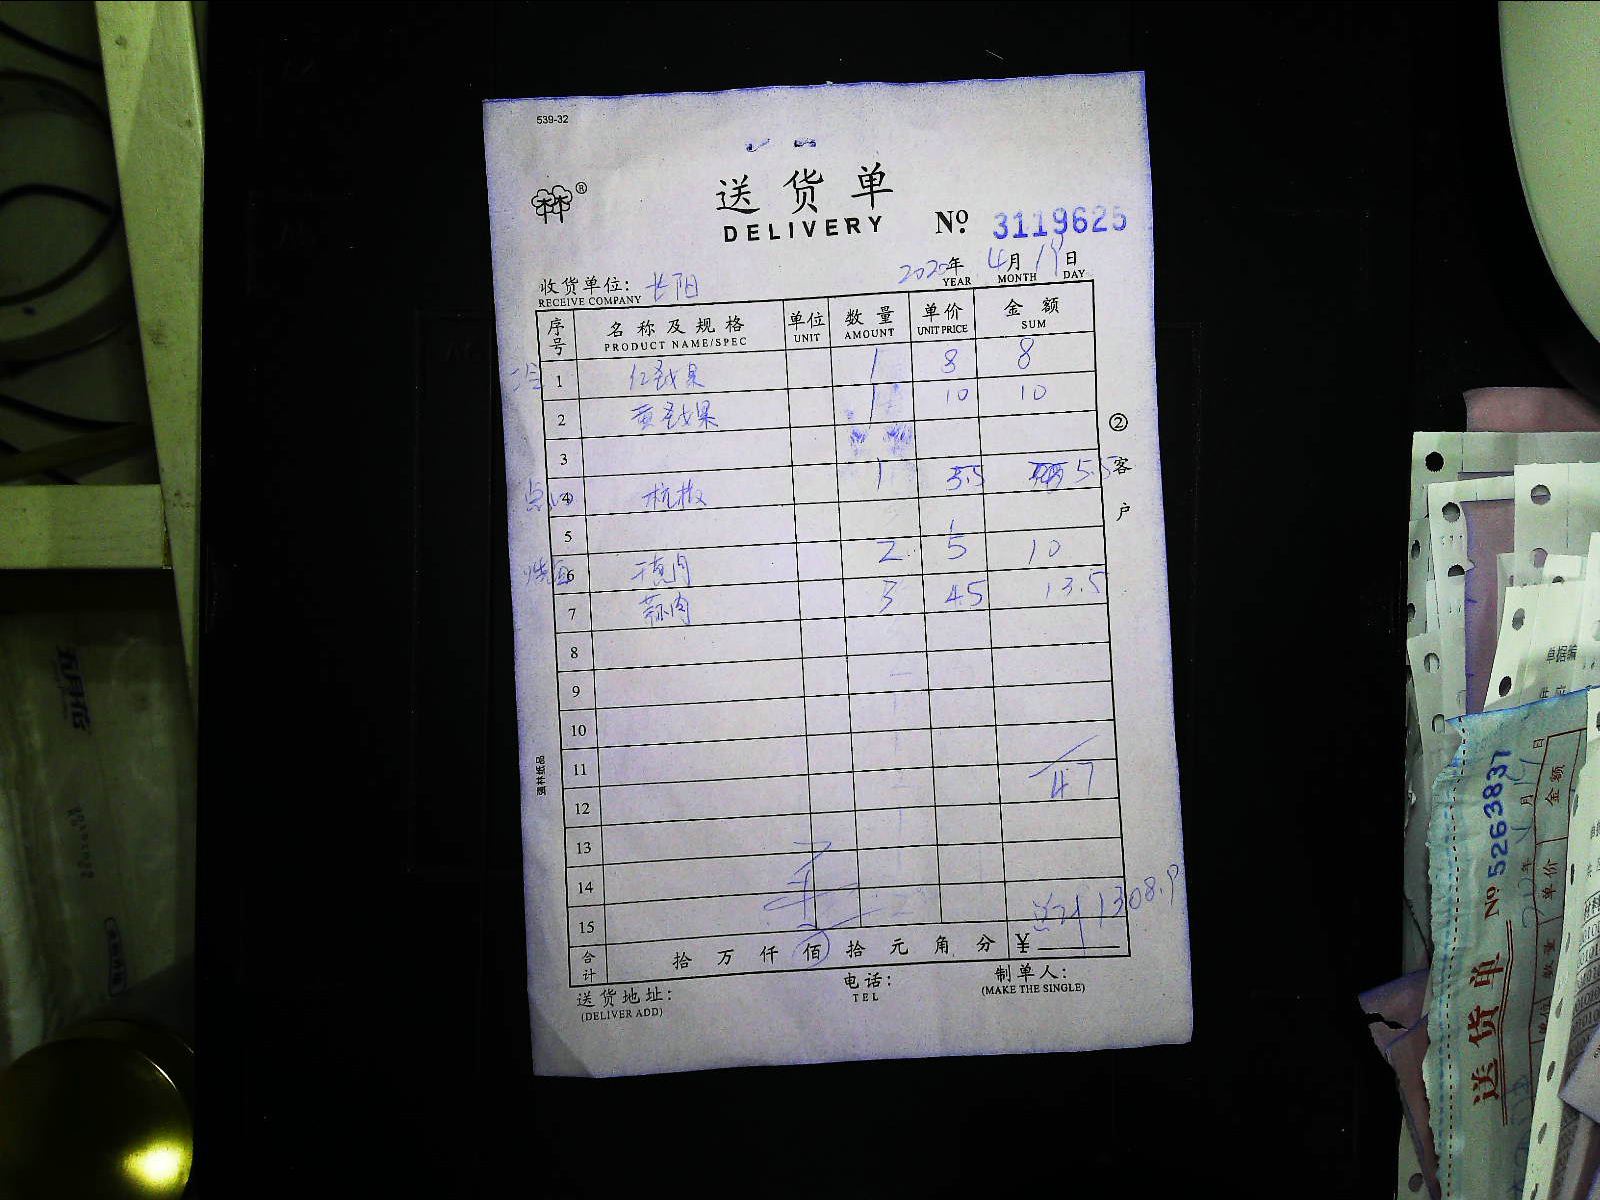 539-32
送货单
DELIVERY
No. 3119625
2020年 4月 19日
YEAR MONTH DAY
收货单位: 长阳
RECEIVE COMPANY
序号 名称及规格 单位 数量 单价 金额
PRODUCT NAME/SPEC UNIT AMOUNT UNIT PRICE SUM
1 红圣女果 1 8 8
2 黄圣女果 1 10 10
3
点心 4 杭椒 1 5.5 5.5
5
6 干葱肉 2 5 10
7 蒜肉 3 4.5 13.5
8
9
10
11
12 47
13
14
15
总计1308.9
合计 拾 万 仟 佰 拾 元 角 分 ¥
送货地址:
(DELIVER ADD)
电话:
TEL
制单人:
(MAKE THE SINGLE)
②客户
送货单
No 5263837
年 月 日
数量 单价 金额
单据编